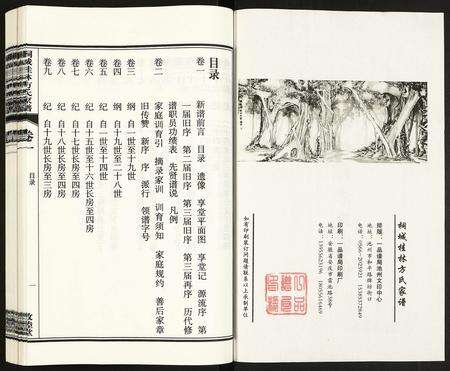 目录
卷一 新谱前言 目录 遗像 享堂平面图 享堂记 源流序 第
一届旧序 第二届旧序 第三届旧序 第三届再序 历代修
谱职员功绩表 先贤谱说 凡例
卷二 家庭训育引 摘录家训 训育须知 家庭规约 善后家章
旧传赞 新序 序 派行 领谱字号
卷三 纲 自一世至十九世
卷四 纲 自十九世至二十八世
卷五 纪 自一世至十四世
卷六 纪 自十五世至十六世长房至四房
卷七 纪 自十七世长房至四房
卷八 纪 自十八世长房至四房
卷九 纪 自十九世长房至三房
桐城桂林方氏家谱
卷一
目录
一
敦睦堂
桐城桂林方氏家谱
排版：一品谱局池州文印中心
地址：池州市和平路牌坊街口
电话：0566-2023921 15385372849
印刷：一品谱局印刷厂
地址：安徽省安庆市霍池路56号
电话：13955623196 18055614469
如有印刷装订问题请联系以上承制单位